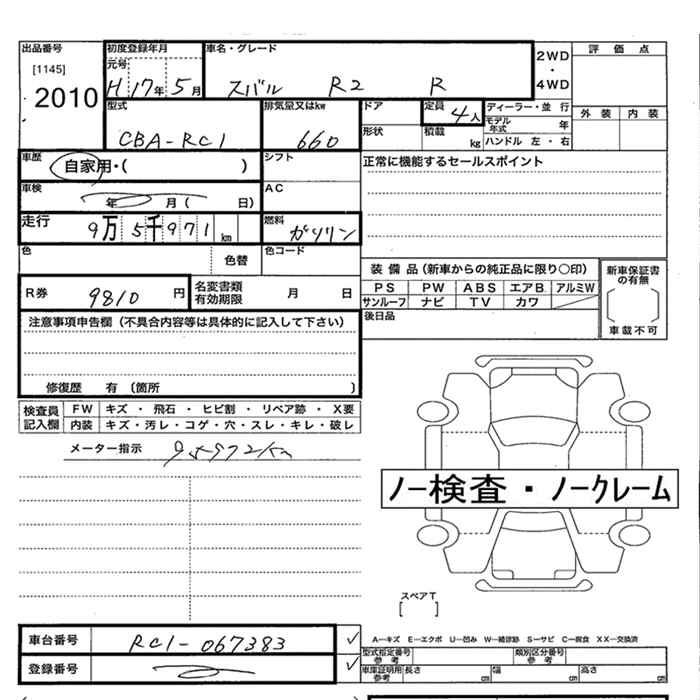 出品番号
[1145]
2010
初度登録年月
元号
H 17年 5月
車名・グレード
スバル R2 R
2WD
・
4WD
評価点
外装 内装
型式
CBA-RC1
排気量又はkw
660
ドア
形状
定員
4人
積載
kg
ディーラー・並行
モデル年式 年
ハンドル 左・右
車歴
自家用・( )
シフト
正常に機能するセールスポイント
車検
年 月( 日)
AC
走行
9万5千971km
燃料
ガソリン
色
色替
色コード
R券
9810円
名変書類
有効期限 月 日
装備品(新車からの純正品に限り〇印)
PS PW ABS エアB アルミW
サンルーフ ナビ TV カワ
新車保証書
の有無
車載不可
後日品
注意事項申告欄(不具合内容等は具体的に記入して下さい)
修復歴 有(箇所 )
検査員
記入欄
FW キズ・飛石・ヒビ割・リペア跡・X要
内装 キズ・汚レ・コゲ・穴・スレ・キレ・破レ
メーター指示 95972km
ノー検査・ノークレーム
スペアT
[ ]
車台番号
RC1-067383
登録番号
A―キズ E―エクボ U―凹み W―補修跡 S―サビ C―腐食 XX―交換済
型式指定番号
参考
類別区分番号
参考
車庫証明用
参考
長さ cm 幅 cm 高さ cm